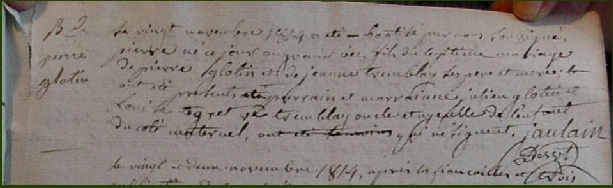 B. de
pierre
glotin
Le vingt novembre 1814 a été baptisé par nous soussigné,
pierre né ce jour au grand fils du légitime mariage
de pierre glotin et de jeanne tremblay ses pere et mere: et
ont été présents parrain et marrainne julien glotin et
Loui le tremblay oncle et ayeulle de l'enfant
du côté maternel, ont été temoins qui ne signent. Jaulain
Le vingt et deux novembre 1814, après la fiancailles et